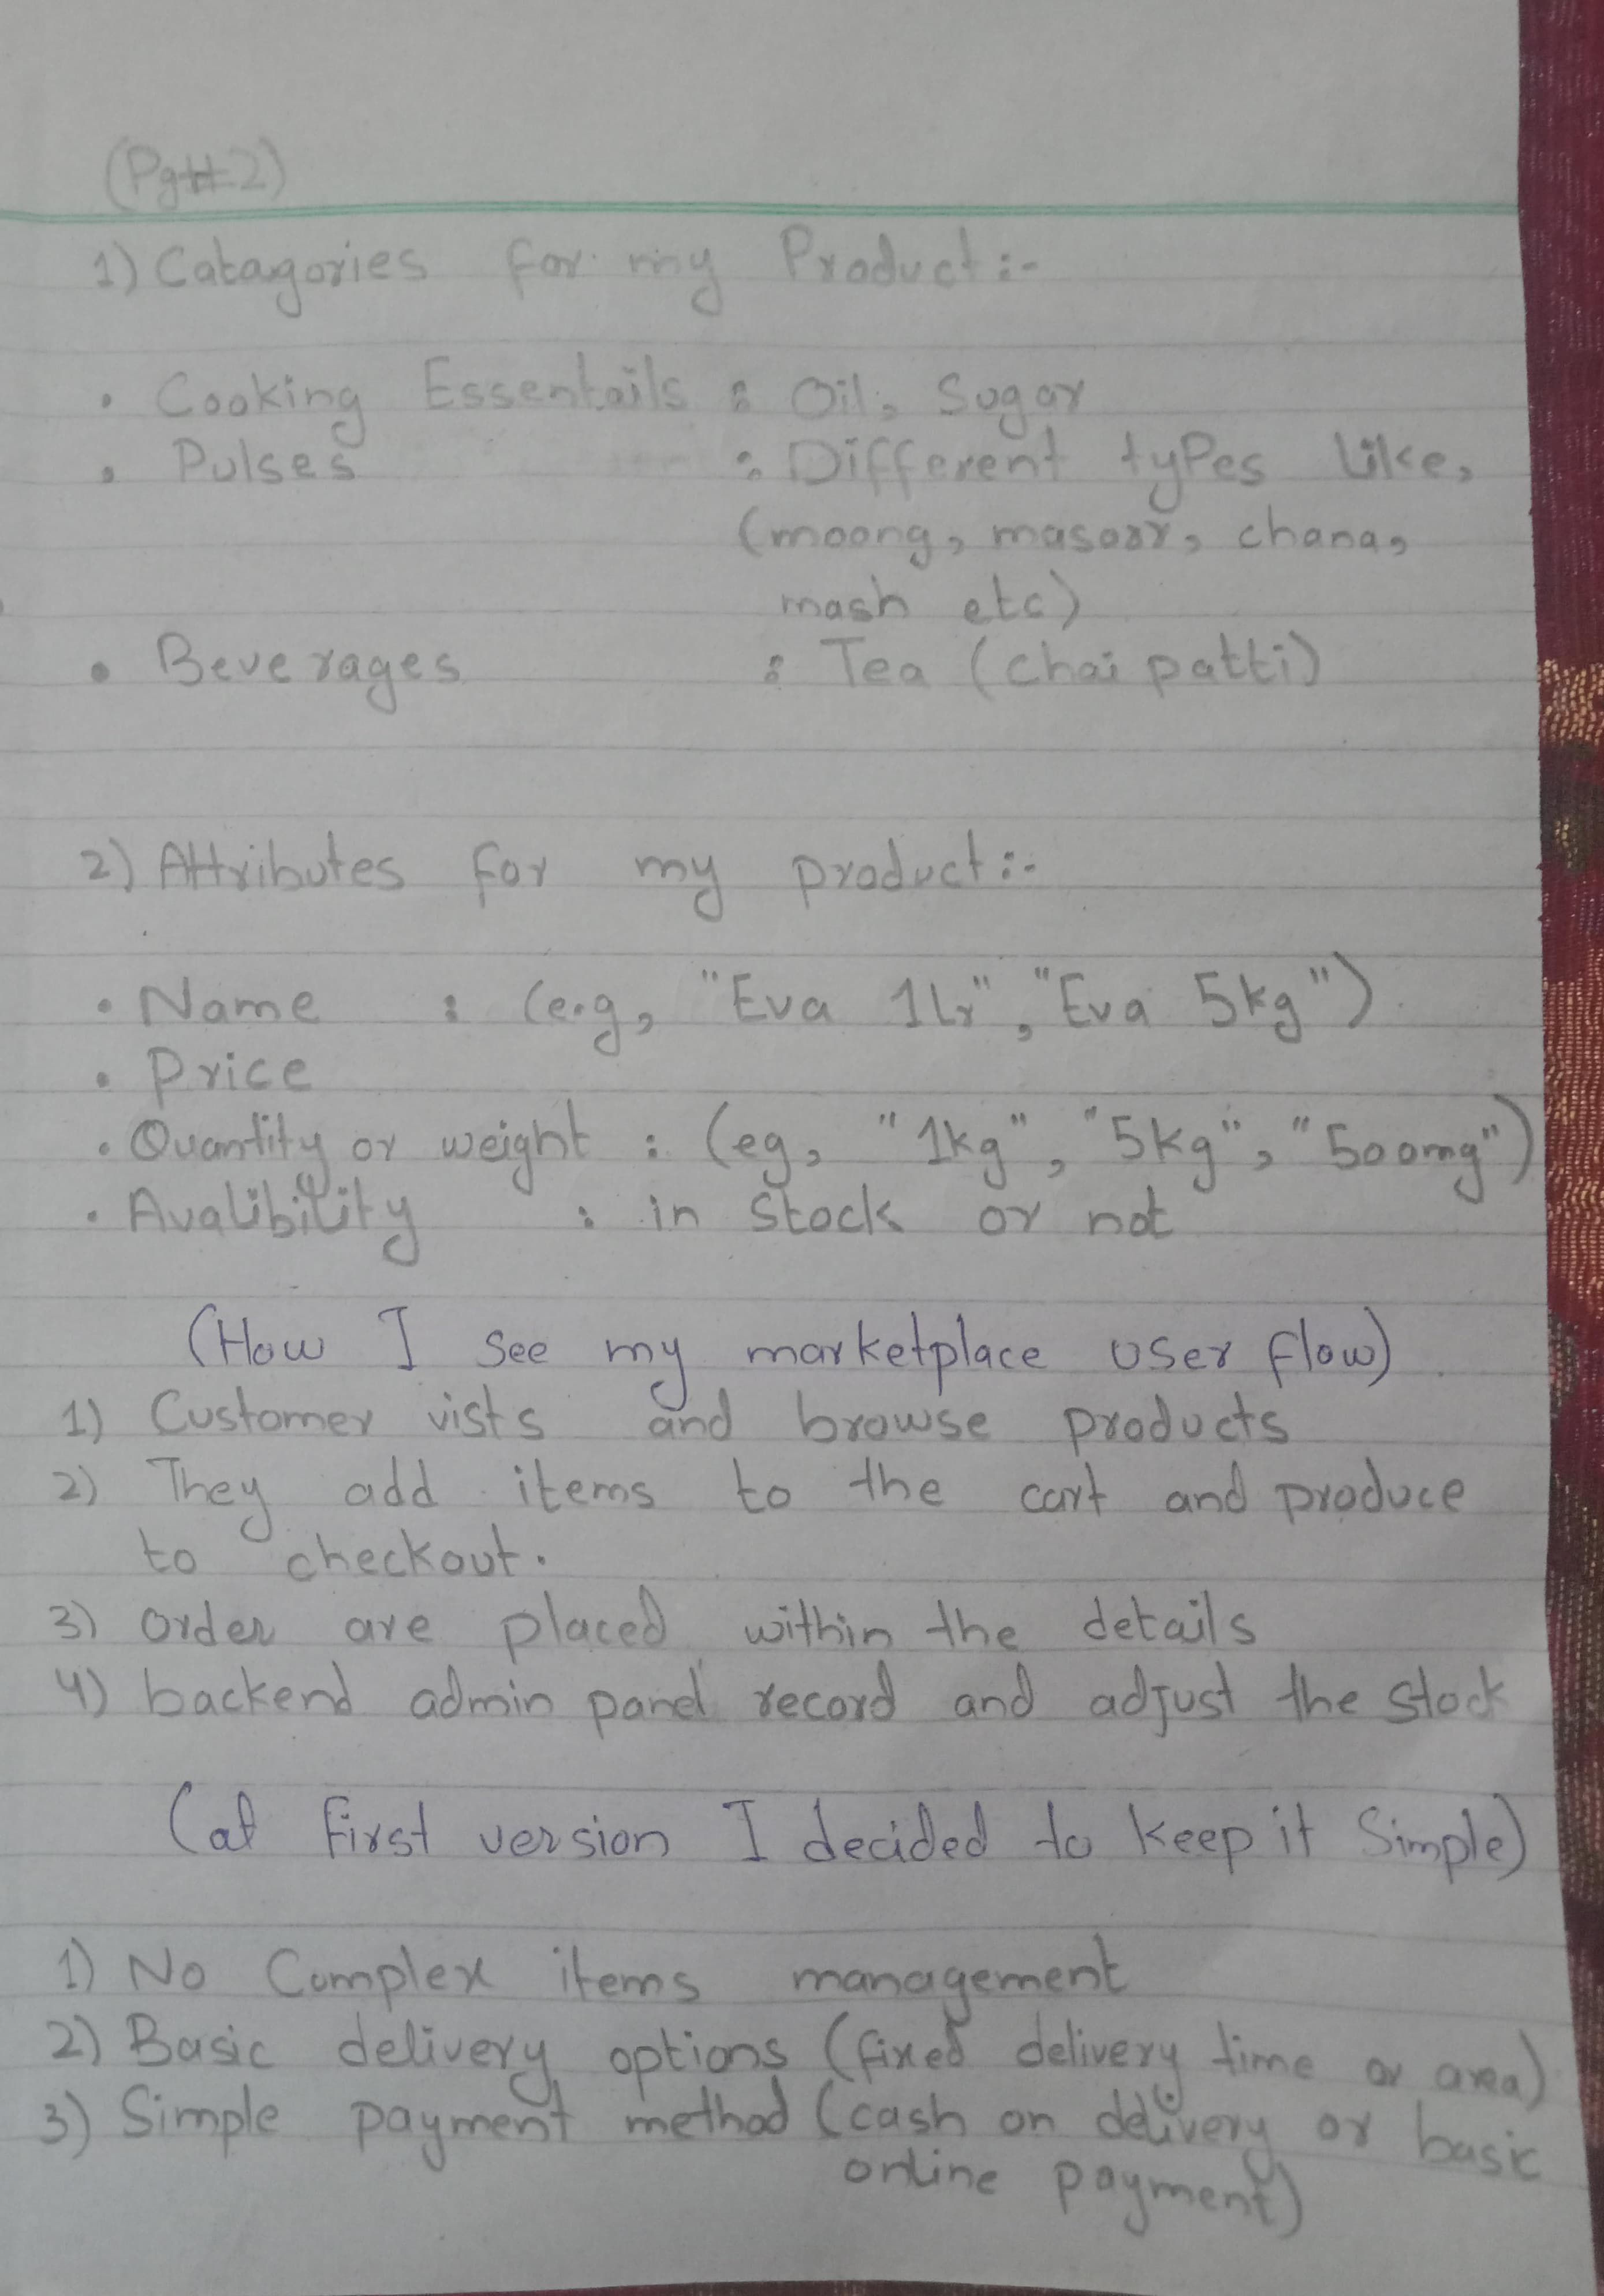 (Pg#2)
1) Catagories for my Product :-
• Cooking Essentails : Oil, Sugar
• Pulses : Different tyPes like,
(moong, masoor, chana,
mash etc)
• Beverages : Tea (chai patti)
2) Attributes for my product :-
• Name : (e.g, "Eva 1Lr", "Eva 5kg")
• Price
• Quantity or weight : (eg, "1kg", "5kg", "500mg")
• Avalibility : in stock or not
(How I see my marketplace user flow)
1) Customer vists and browse products
2) They add items to the cart and produce
to checkout.
3) order are placed within the details
4) backend admin panel record and adjust the stock
(at first version I decided to keep it Simple)
1) No Complex items management
2) Basic delivery options (fixed delivery time or area)
3) Simple payment method (cash on delivery or basic
online payment)